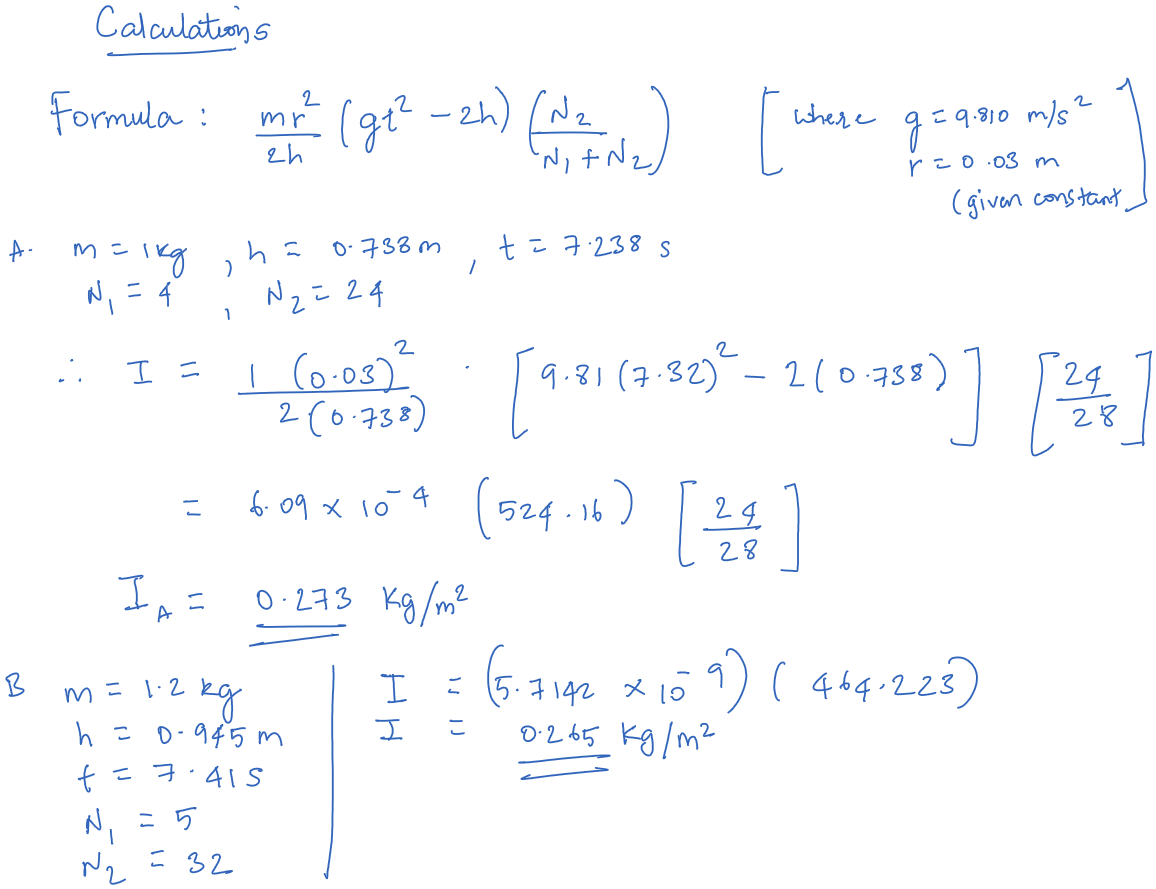 Calculations
Formula : mr²/2h (gt² - 2h) (N₂/N₁ + N₂) [where g = 9.810 m/s²
r = 0.03 m
(given constant]
A. m = 1kg , h = 0.738 m , t = 7.238 s
N₁ = 4 , N₂ = 24
∴ I = 1 (0.03)²/2 (0.738) · [9.81 (7.32)² - 2 (0.738)] [24/28]
= 6.09 x 10⁻⁴ (524.16) [24/28]
I_A = 0.273 Kg/m²
B m = 1.2 kg
h = 0.945 m
t = 7.41 s
N₁ = 5
N₂ = 32
I = (5.7142 x 10⁻⁹) (464.223)
I = 0.265 kg/m²